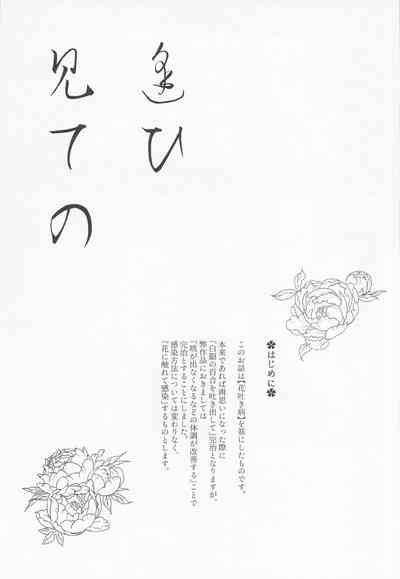 逢ひ
見ての
✽はじめに✽
このお話は【花吐き病】を基にしたものです。
本来であれば両思いになった際に
「白銀の百合を吐き出して」完治となりますが、
弊作品におきましては
「咳が出なくなるなどの体調が改善する」ことで
完治とすることにしました。
感染方法については変わりなく、
『花に触れて感染』するものとします。